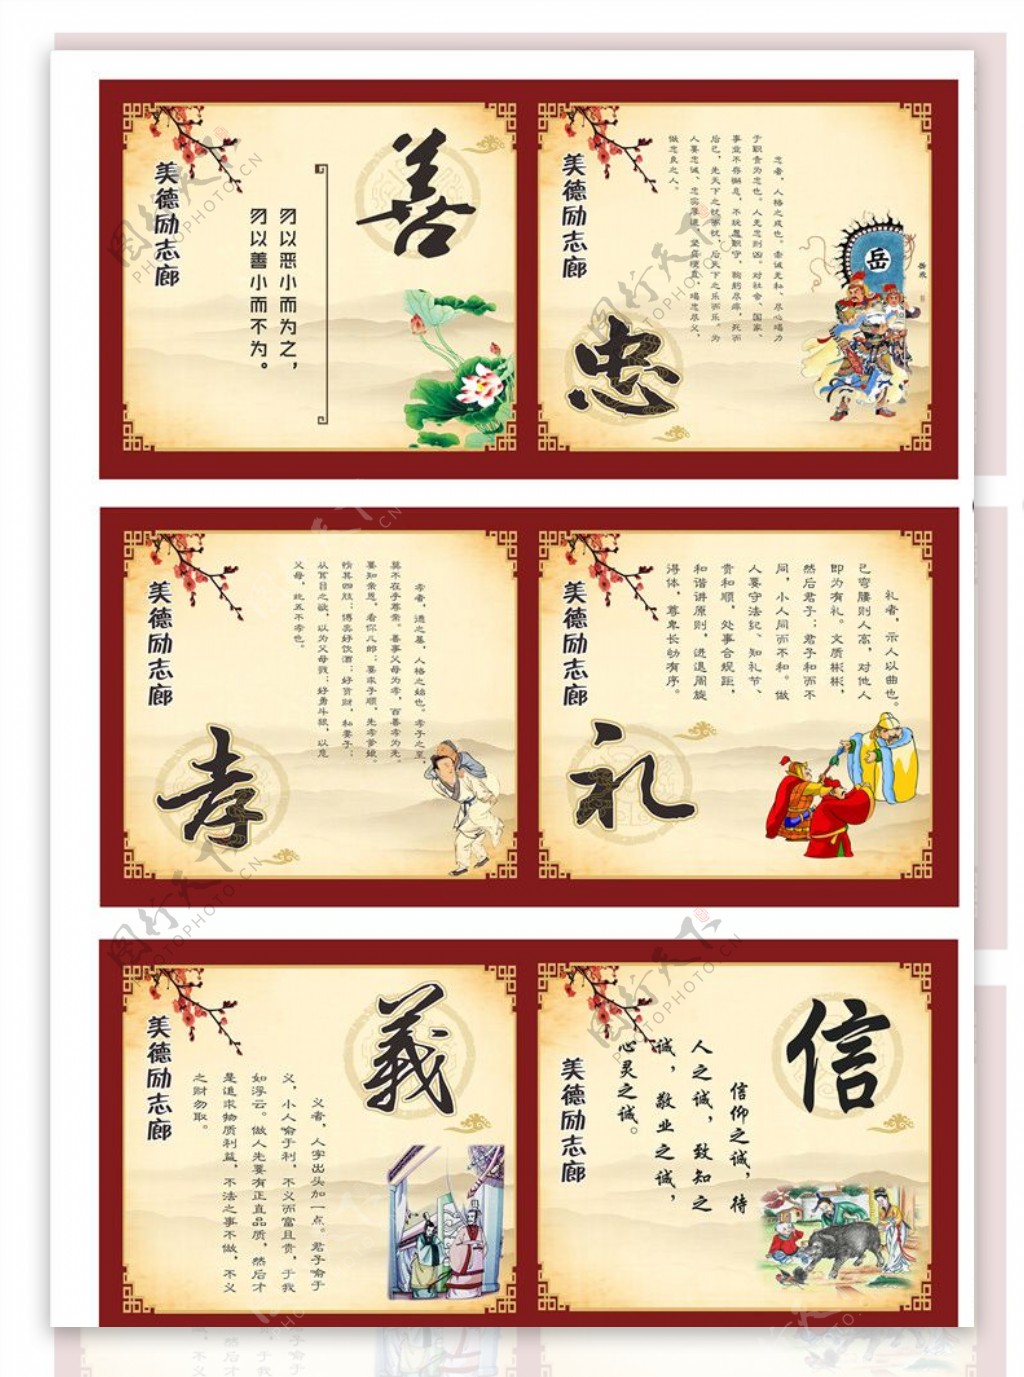 美德励志廊
善
勿以恶小而为之，
勿以善小而不为。
美德励志廊
忠
忠者，人格之成也。赤诚无私、尽心竭力
于职责为忠也。人无忠则凶。对社会、国家、
事业不存懈息，不玩愚职守，鞠躬尽瘁，死而
后已，先天下之忧而忧，后天下之乐而乐。为
人要忠诚、忠实厚道、坚贞梗直，竭忠尽义，
做忠良之人。
岳
岳飞
美德励志廊
孝
孝者，德之基，人格之始也。孝子之至，
莫不在乎尊亲。善事父母为孝，百善孝为先。
要知亲恩，看你儿郎；要求子顺，先孝爹娘。
惰其四肢；博奕好饮酒；好货财，私妻子；
从耳目之欲，以为父母戮；好勇斗狠，以危
父母，此五不孝也。
美德励志廊
礼
礼者，示人以曲也。
己弯腰则人高，对他人
即为有礼。文质彬彬，
然后君子；君子和而不
同，小人同而不和。做
人要守法纪、知礼节、
贵和顺，处事合规距，
和谐讲原则，进退周旋
得体，尊卑长幼有序。
美德励志廊
義
义者，人字出头加一点。君子喻于
义，小人喻于利，不义而富且贵，于我
如浮云。做人先要有正直品质，然后才
是追求物质利益，不法之事不做，不义
之财勿取。
美德励志廊
信
信仰之诚，待
人之诚，致知之
诚，敬业之诚，
心灵之诚。